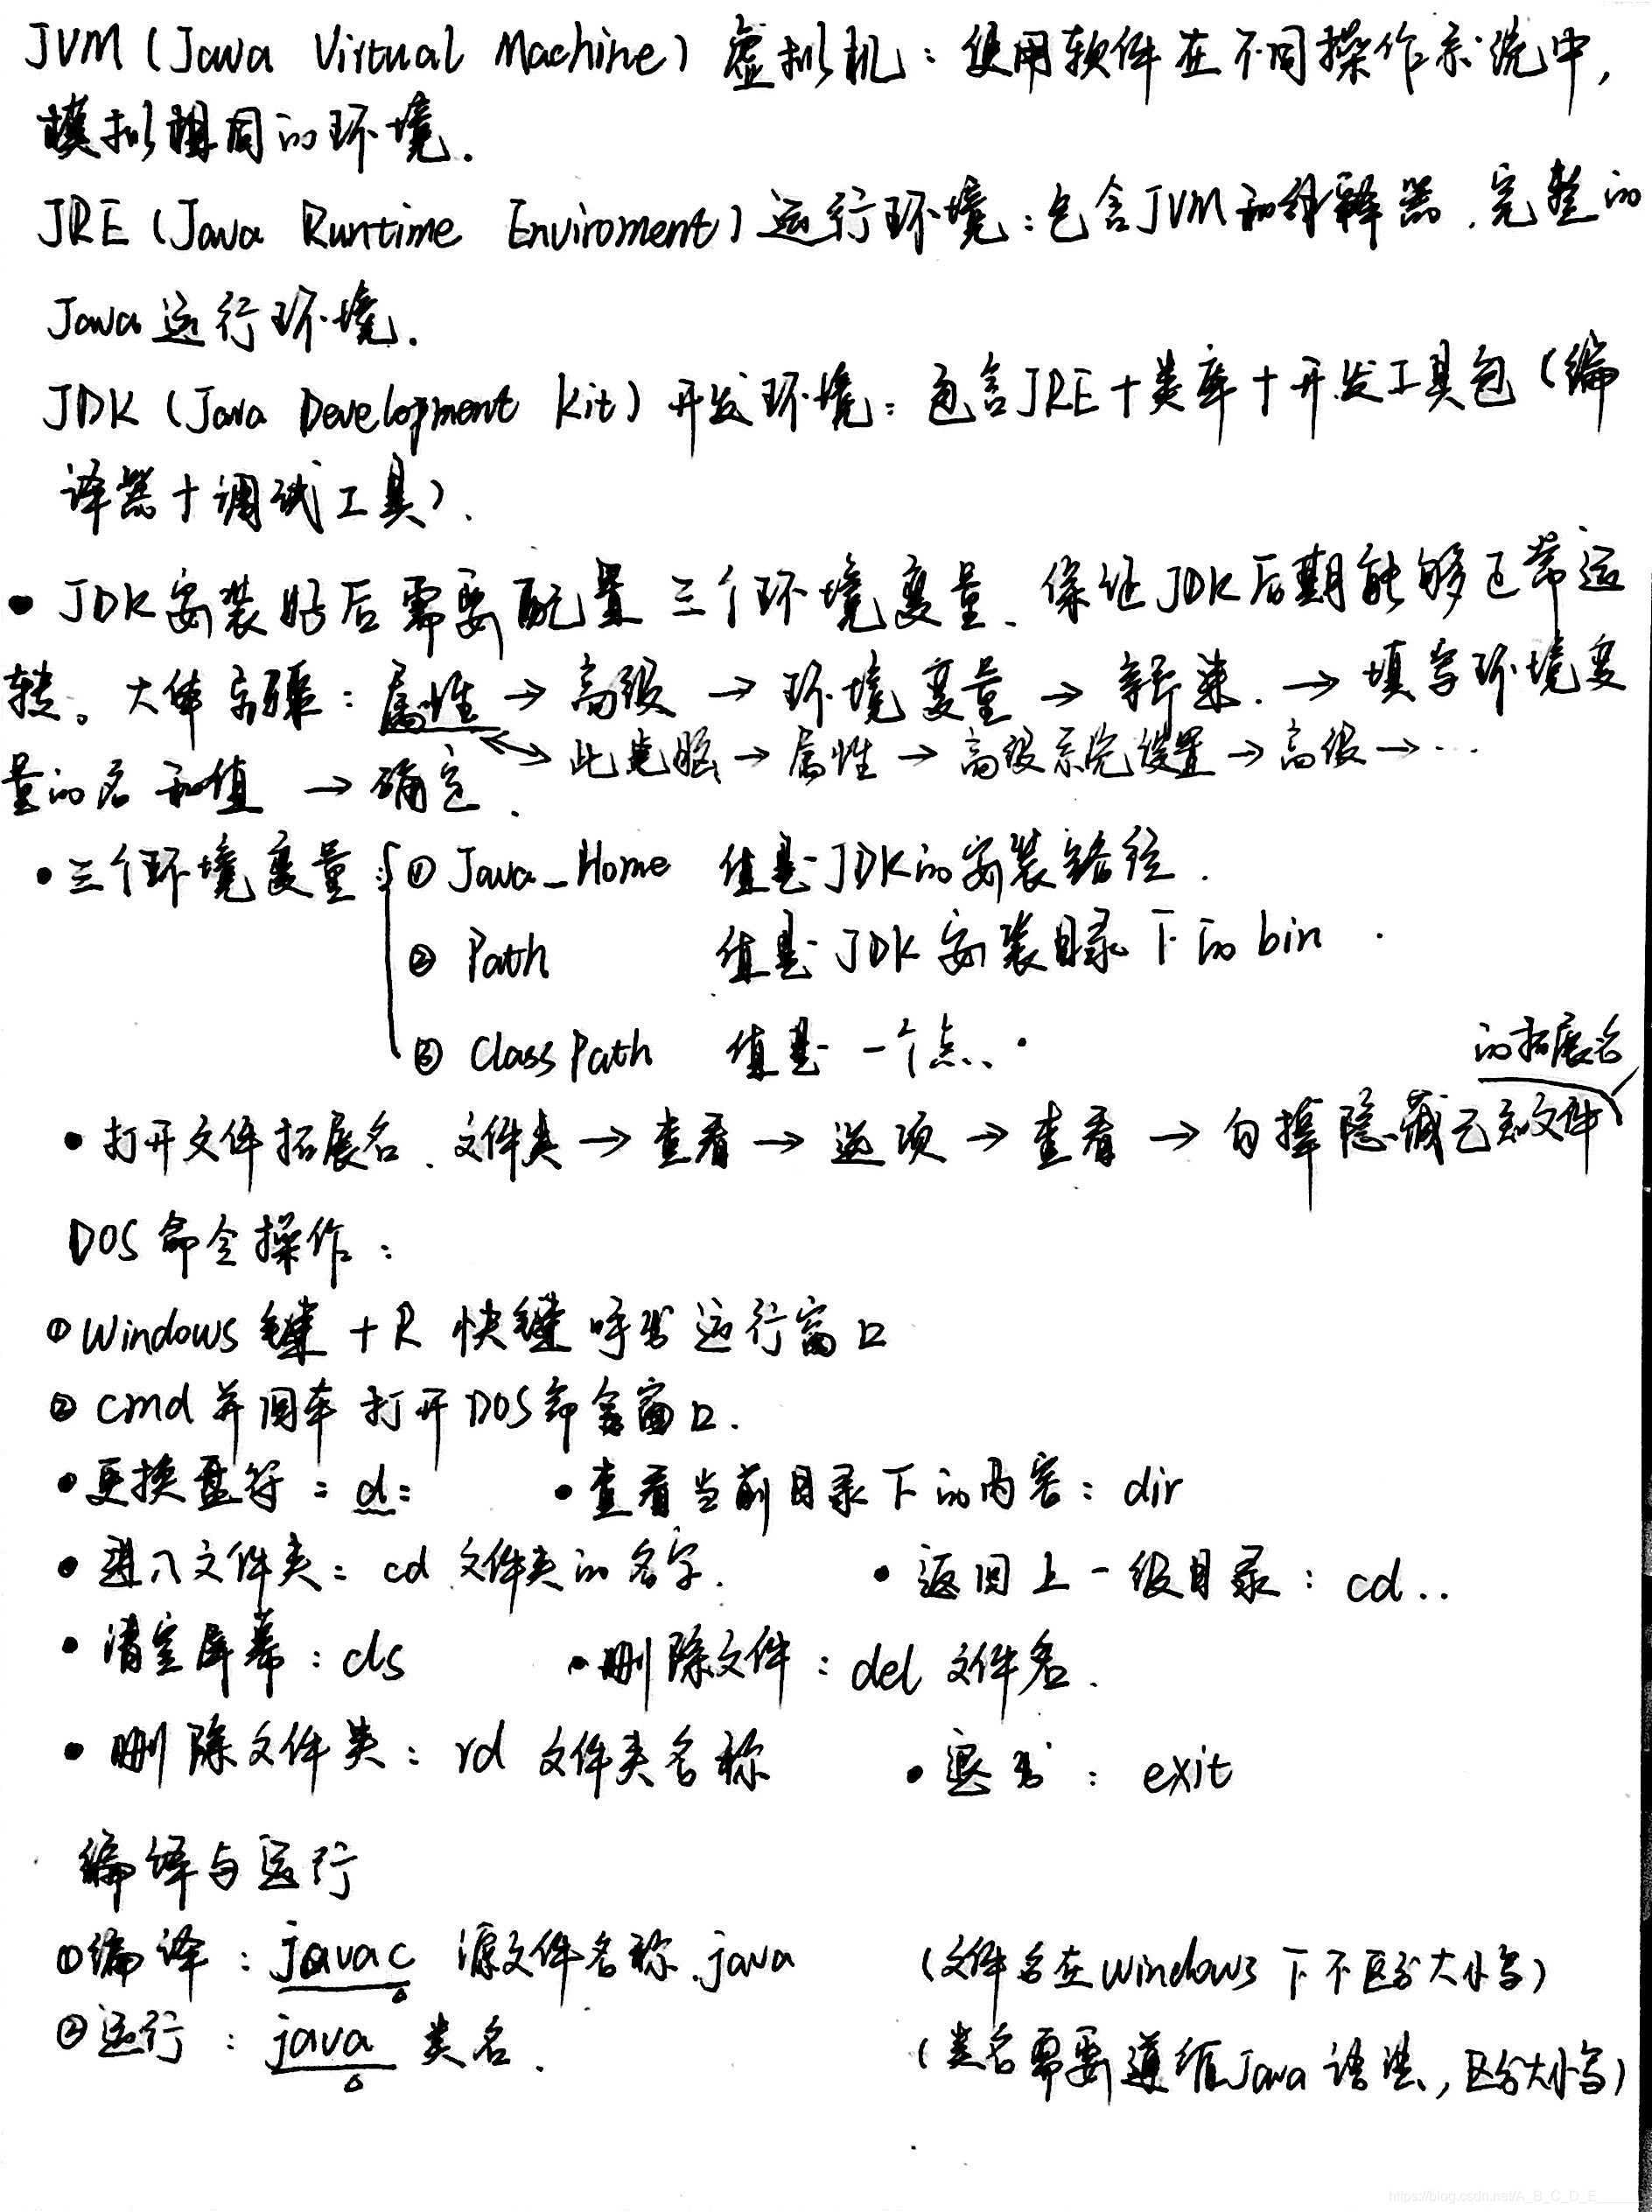 JVM (Java Virtual Machine) 虚拟机：使用软件在不同操作系统中，
模拟相同的环境.
JRE (Java Runtime Enviroment) 运行环境：包含JVM和解释器.完整的
Java运行环境.
JDK (Java Development Kit) 开发环境：包含JRE+类库+开发工具包 (编
译器+调试工具).
• JDK安装好后需要配置三个环境变量、保证JDK后期能够正常运
转。大体步骤：属性 → 高级 → 环境变量 → 新建. → 填写环境变
此电脑 → 属性 → 高级系统设置 → 高级 → ...
量的名和值 → 确定.
• 三个环境变量：① Java_Home 值是JDK的安装路径.
② Path 值是JDK安装目录下的bin.
③ ClassPath 值是一个点. •
的拓展名
• 打开文件拓展名. 文件夹 → 查看 → 选项 → 查看 → 勾掉隐藏已知文件
DOS命令操作：
① Windows键 + R 快键呼出运行窗口
② cmd并回车打开DOS命令窗口.
• 更换盘符：d: • 查看当前目录下的内容：dir
• 进入文件夹：cd 文件夹的名字. • 返回上一级目录：cd..
• 清空屏幕：cls • 删除文件：del 文件名.
• 删除文件类：rd 文件夹名称 • 退出：exit
编译与运行
①编译：javac 源文件名称.java (文件名在Windows下不区分大小写)
②运行：java 类名. (类名需要遵循Java语法,区分大小写)
https://blog.csdn.net/A_B_C_D_E